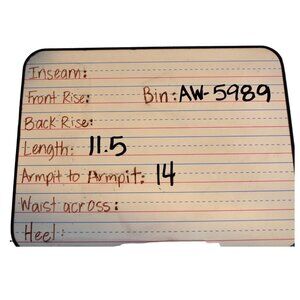 Inseam:
Front Rise: Bin: AW-5989
Back Rise:
Length: 11.5
Armpit to Armpit: 14
Waist across:
Heel: